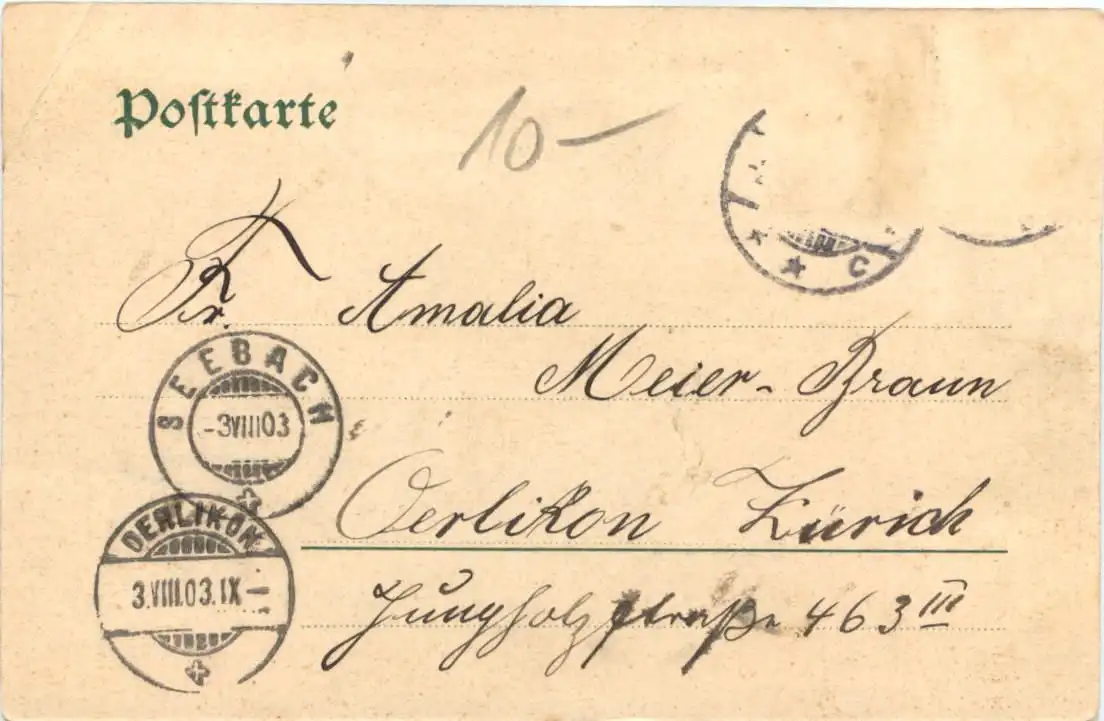 Postkarte
10-
Fr. Amalia
Meier-Braun
SEEBACH
-3VIII03
Oerlikon Zürich
OERLIKON
3.VIII.03.IX-
Jungholzstraße 463 III
C